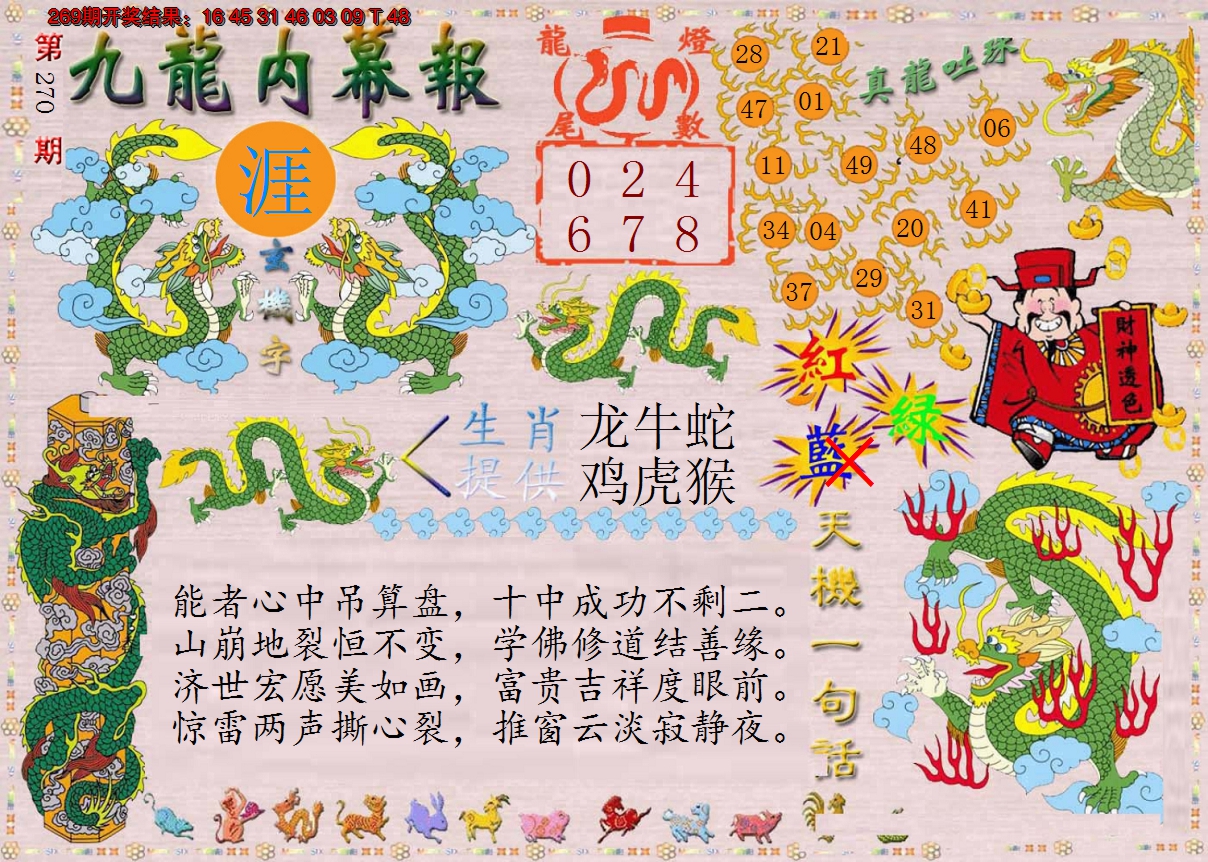 269期开奖结果：16 45 31 46 03 09 T 48
第270期
九龍内幕報
涯
玄機字
龍燈
尾數
0 2 4
6 7 8
真龍吐珠
28 21
47 01
11 49 48 06
34 04 20 41
37 29 31
紅
綠
藍
財神透色
生肖 龙牛蛇
提供 鸡虎猴
天機一句話
能者心中吊算盘，十中成功不剩二。
山崩地裂恒不变，学佛修道结善缘。
济世宏愿美如画，富贵吉祥度眼前。
惊雷两声撕心裂，推窗云淡寂静夜。